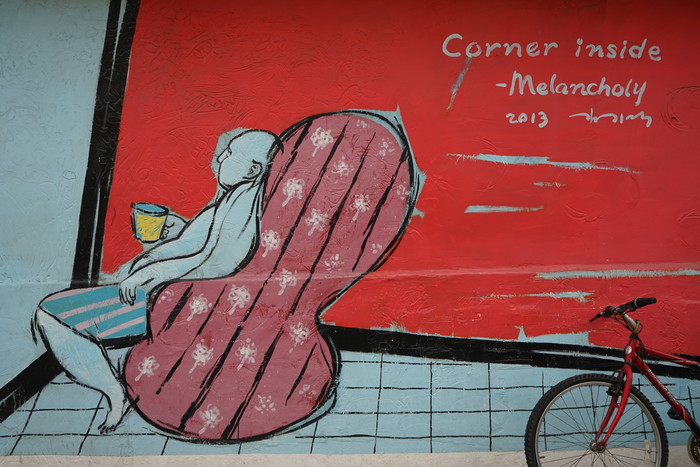 Corner inside
-Melancholy
2013